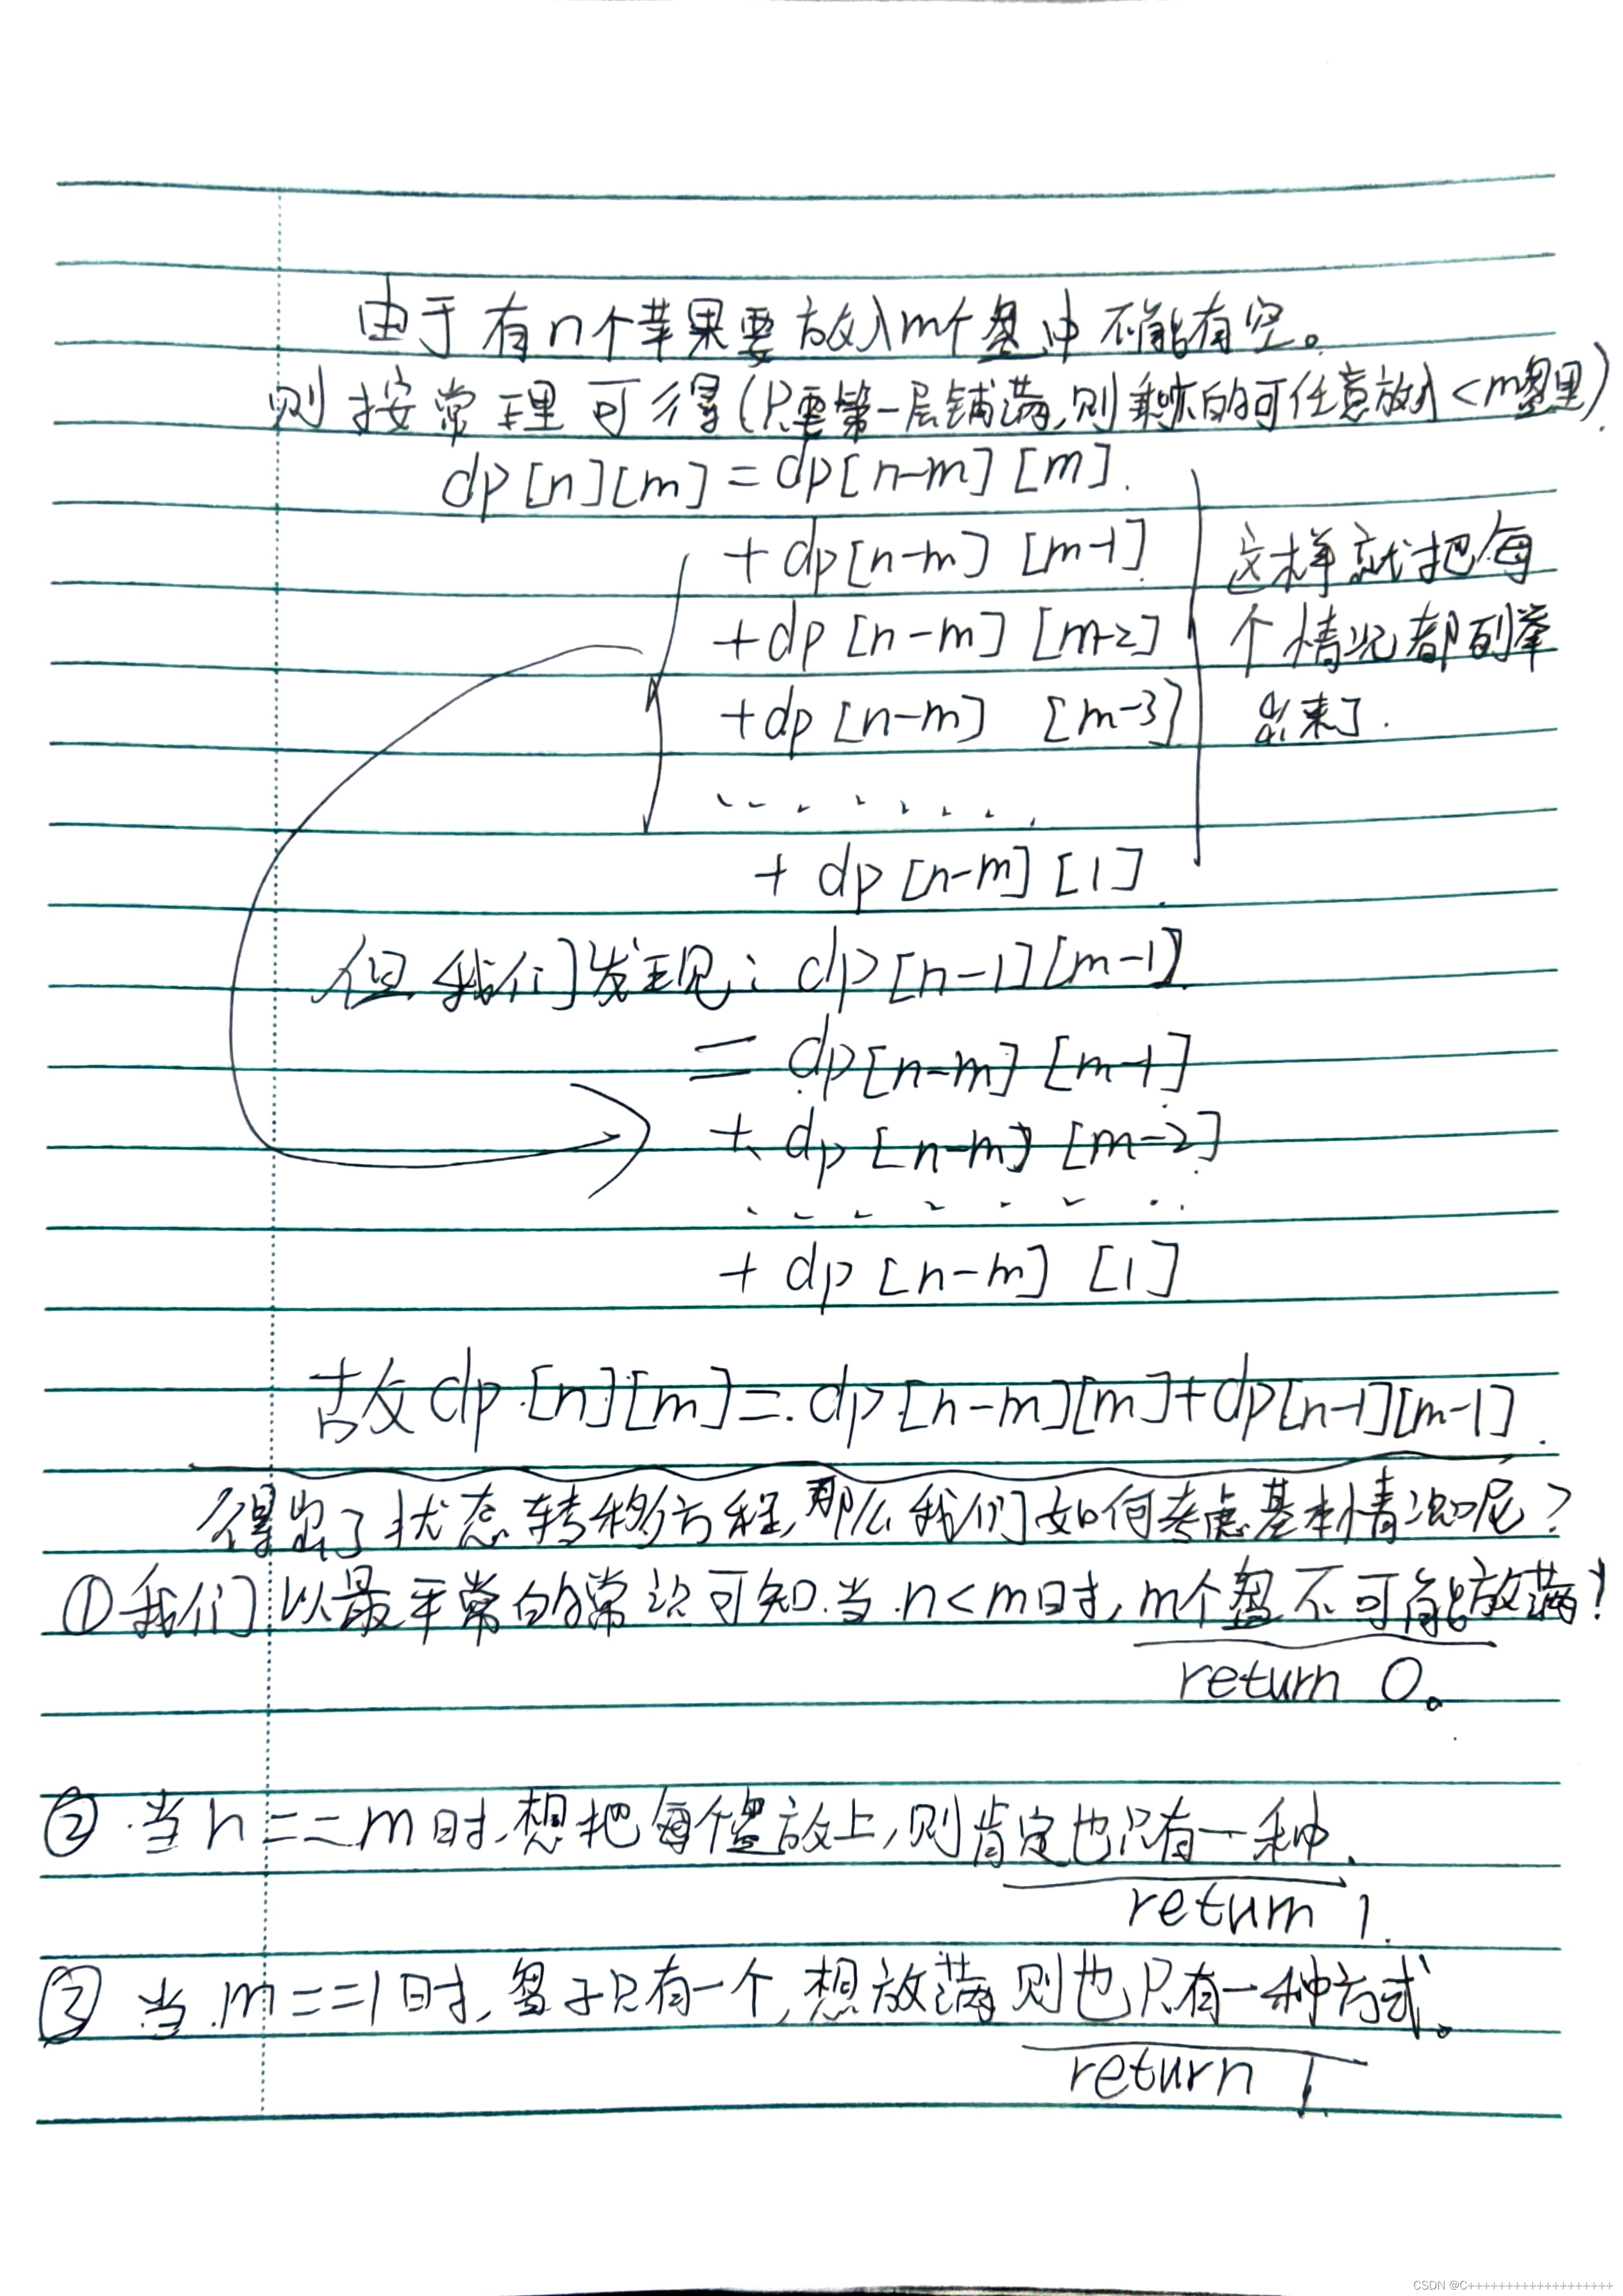 由于有n个苹果要放入m个盘中不能有空。
则按常理可得(只要第一层铺满,则剩余的可任意放入<m盘里)
dp[n][m]=dp[n-m][m].
+dp[n-m][m-1] 这样就把每
+dp[n-m][m-2] 个情况都列举
+dp[n-m][m-3] 出来了.
.......
+dp[n-m][1]
但我们发现:dp[n-1][m-1]
=dp[n-m][m-1]
+dp[n-m][m-2]
........
+dp[n-m][1]
故dp[n][m]=dp[n-m][m]+dp[n-1][m-1].
得出了状态转移方程,那么我们如何考虑基本情况呢?
①我们以最平常的常识可知.当n<m时,m个盘不可能放满!
return 0。
②当n==m时,想把每个盘放上,则肯定也只有一种.
return 1.
③当m==1时,盘子只有一个,想放满则也只有一种方式。
return 1.
CSDN @C++++++++++++++++++++